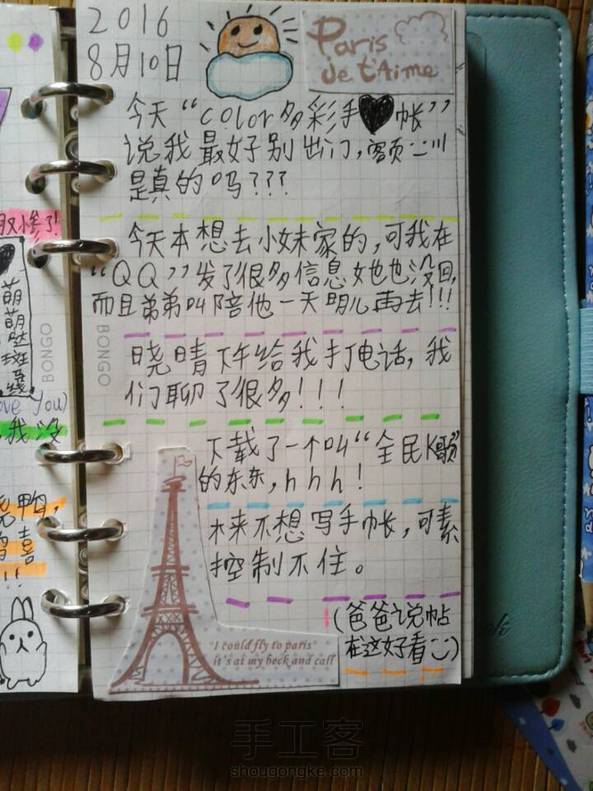 2016
8月10日
Paris
Je t'Aime
今天“color多彩手♥帐”
说我最好别出门,
是真的吗???
今天本想去小妹家的,可我在
“QQ”发了很多信息她也没回,
而且弟弟叫陪他一天明儿再去!!!
晓晴下午给我打电话,我
们聊了很多!!!
下载了一个叫“全民K歌”
的东东,hhh!
本来不想写手帐,可素
控制不住。
(爸爸说帖
在这好看:))
"I could fly to paris"
it's at my beck and call
BONGO
BONGO
惨了!
萌
萌
哒
斑
love you)
我没
鸭,
喜
!!
手工客
shougongke.com